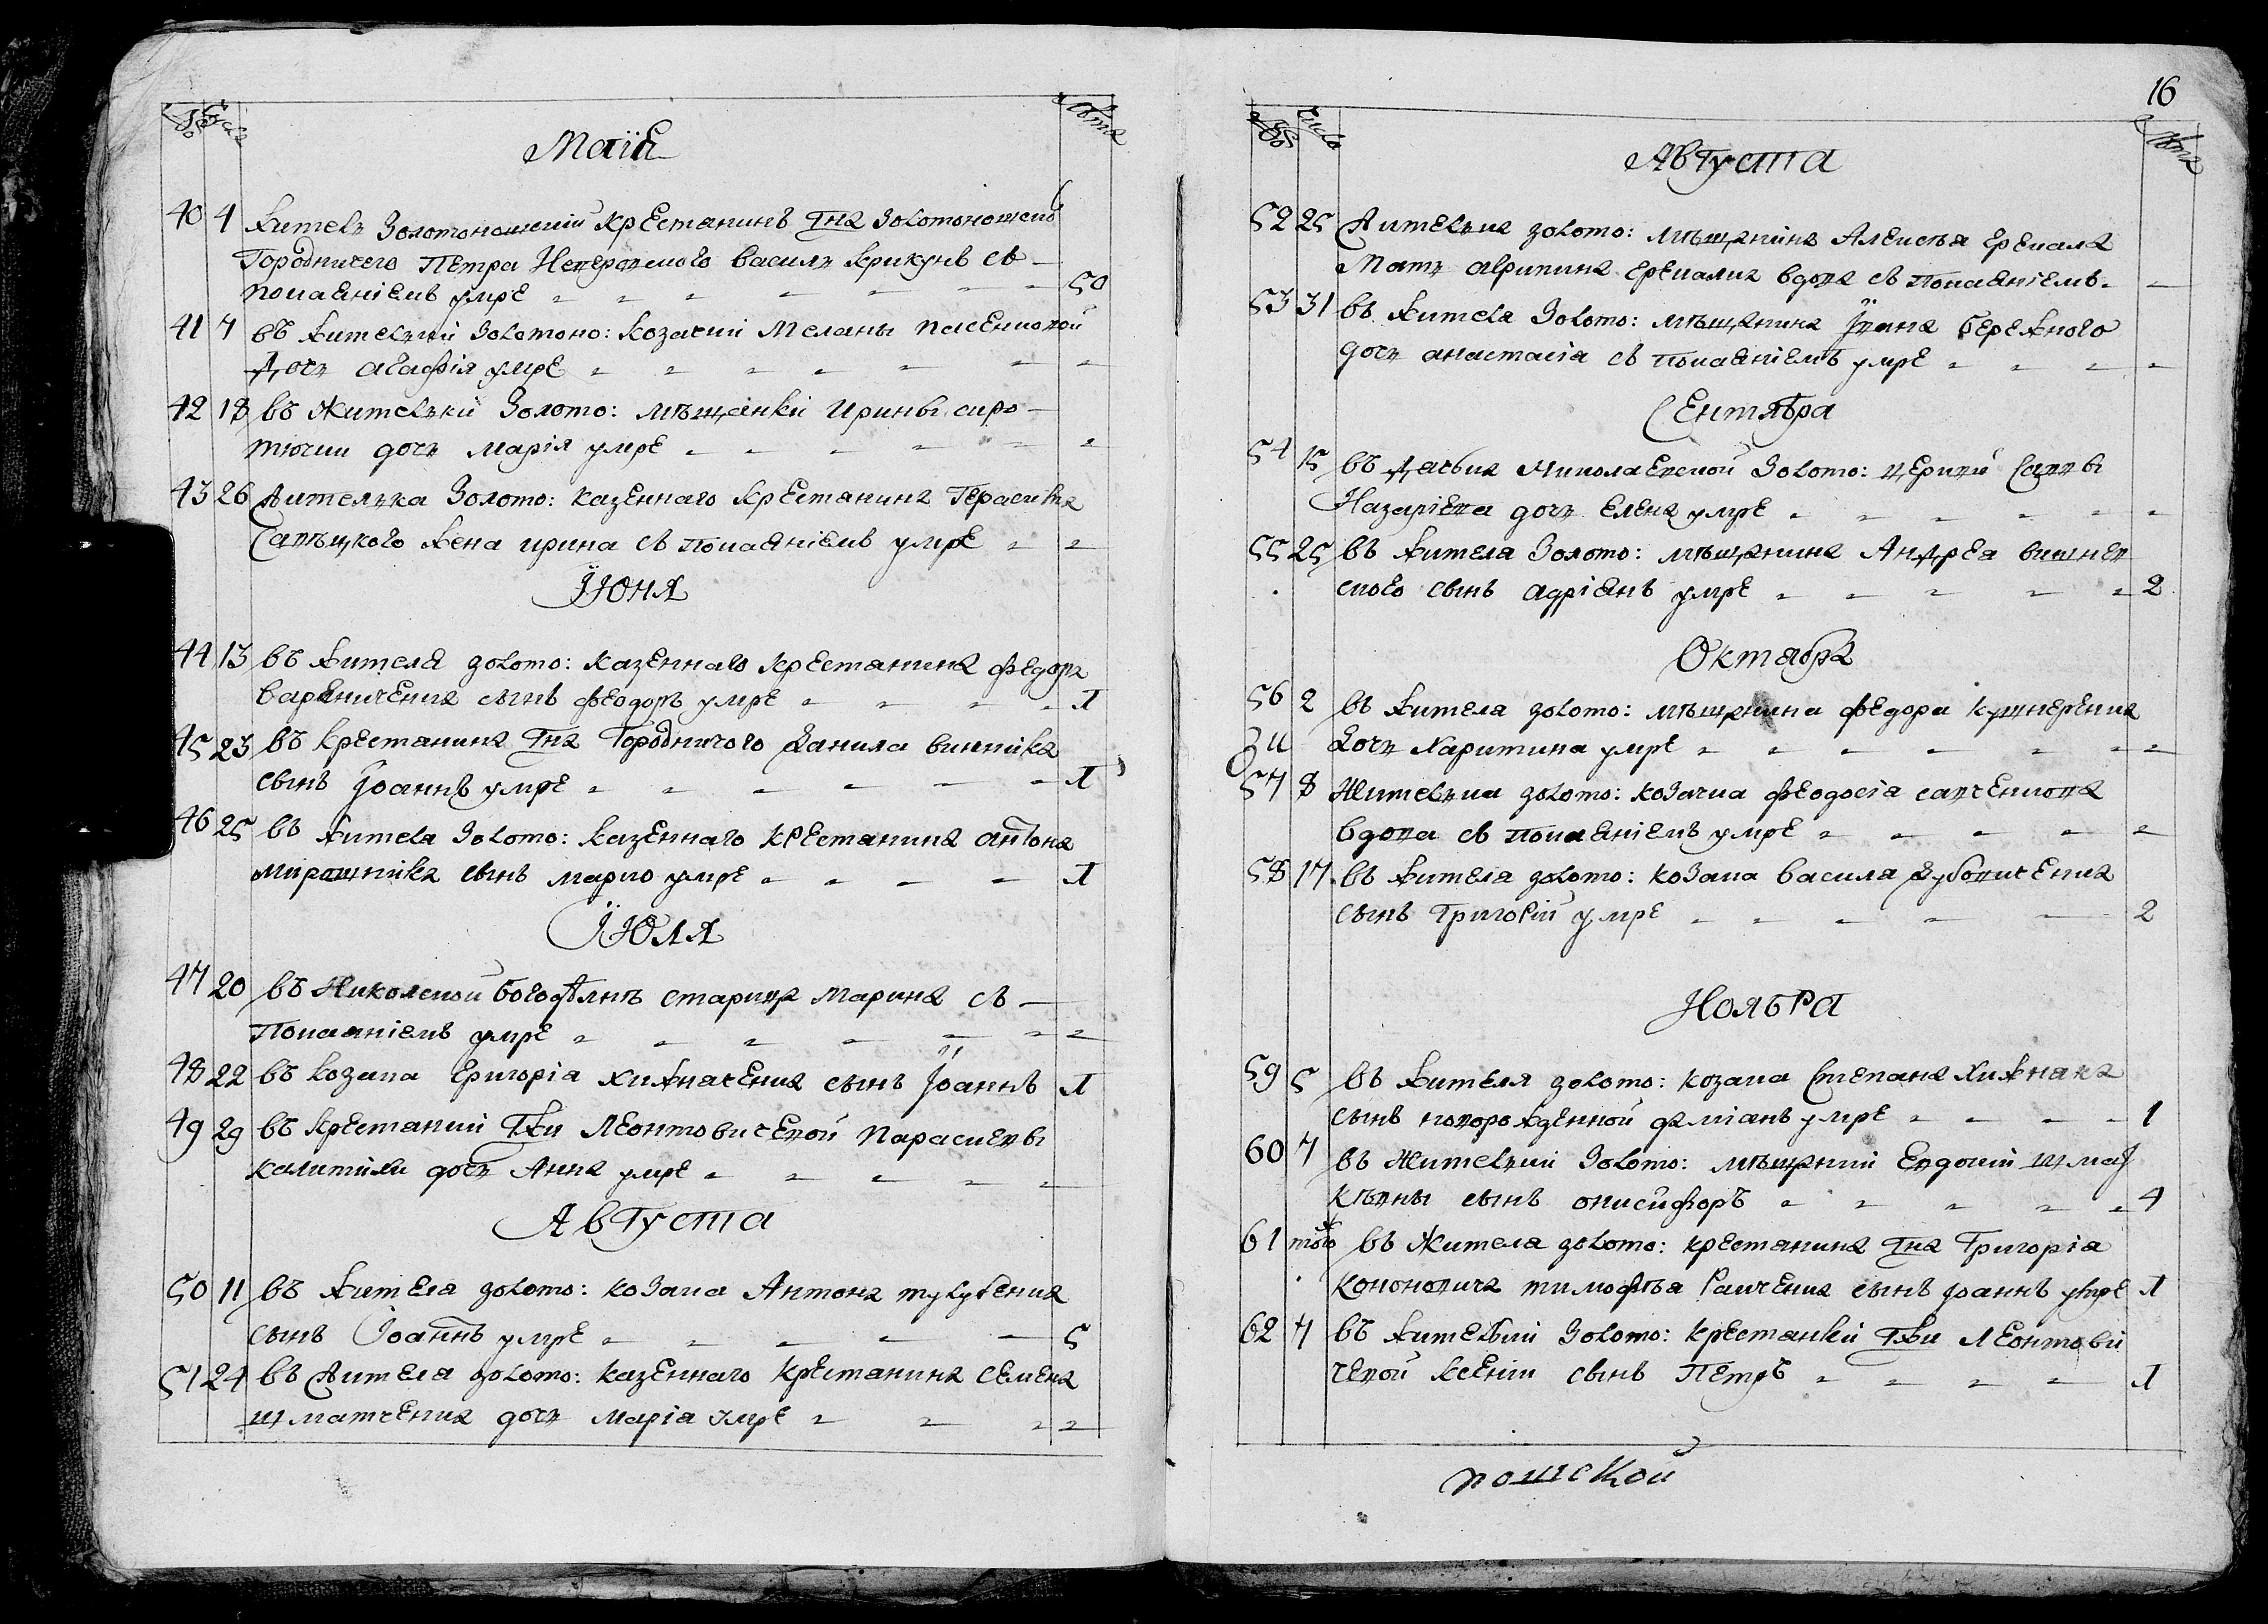 № Число Лѣта
Маїя
40 4 житель Золотоношскій крестанинъ Гна Золотоношскаго
Городничего Петра Неперовского Василь Крикунъ съ
покаяніемъ умре 50
41 7 въ жителкки Золотоно: козачки Меланы
Дочь агафія умре
42 18 въ Жителки Золото: мѣщанки Ирины сиро-
тючки дочь марія умре
43 26 Жителька Золото: казеннаго крестанина Герасима
жена ирина съ покаяніемъ умре
Іюня
44 13 въ жителя золото: казеннаго крестанина федора
варениченка сынъ феодоръ умре 1
45 23 въ крестанина Гна Городничого Данила винника
сынъ Іоаннъ умре 1
46 25 въ жителя Золото: казеннаго крестанина антона
мирошника сынъ марко умре 1
Іюля
47 20 въ Николской богодѣлнѣ старица марина съ
покаяніемъ умре
48 22 въ козака Григорія хижначенка сынъ Іоаннъ 1
49 29 въ крестанки Гжи Леонтовичевой парасиевы
калитики дочь Анна умре
Августа
50 11 въ жителя золото: козака Антона
сынъ Іоаннъ умре 5
51 24 въ жителя золото: казеннаго крестанина семена
шматченка дочь марія умре
16
№ Число Лѣта
Августа
52 25 Жителька золото: мѣщанина Алексѣя
Мать агрипина вдова съ покаяніемъ
53 31 въ жителя Золото: мѣщанина Івана бережного
дочь анастасія съ покаяніемъ умре
Сентября
54 15 въ Дячька Николаевской Золото: церкви Саввы
Назаріева дочь Елена умре
55 25 въ жителя Золото: мѣщанина Андрея вишнев
ского сынъ адріанъ умре 2
Октября
56 2 въ жителя золото: мѣщанина федора кушнеренка
дочь Харитина умре
57 8 Жителька золото: козачка феодосія савченкова
вдова съ покаяніемъ умре
58 17 въ жителя золото: козака василя дубовиченка
сынъ Григорій умре 2
Ноября
59 5 въ жителя золото: козака Степана Хижнака
сынъ новорожденной умре 1
60 7 въ Жителки Золото: мѣщанки Евдокии
сынъ онисифоръ 4
61 тогож въ Жителя золото: крестанина Гна Григорія
Кононовича тимофѣя Раиченка сынъ Іоаннъ умре 1
62 7 въ жителки Золото: крестанки Гжи Леонтови
чевой Ксеніи сынъ Петръ 1